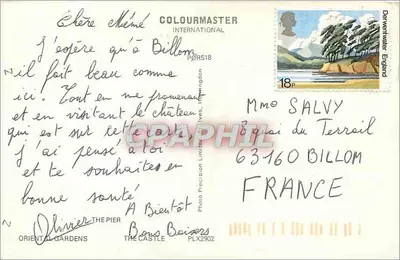 Chère Mémé
COLOURMASTER
INTERNATIONAL
J'espère qu'à Billom
PBR518
il fait beau comme
ici. Tout en me promenant
et en visitant le château
qui est sur cette carte,
j'ai pensé à toi
et te souhaites en
bonne santé
A Bientôt
Bons Baisers
Olivier
THE PIER
ORIENTAL GARDENS
THE CASTLE
PLX2902
Photo Precision Limited
18P
Derwentwater England
Mme SALVY
8 quai du Terrail
63160 BILLOM
FRANCE
CPAPHIL